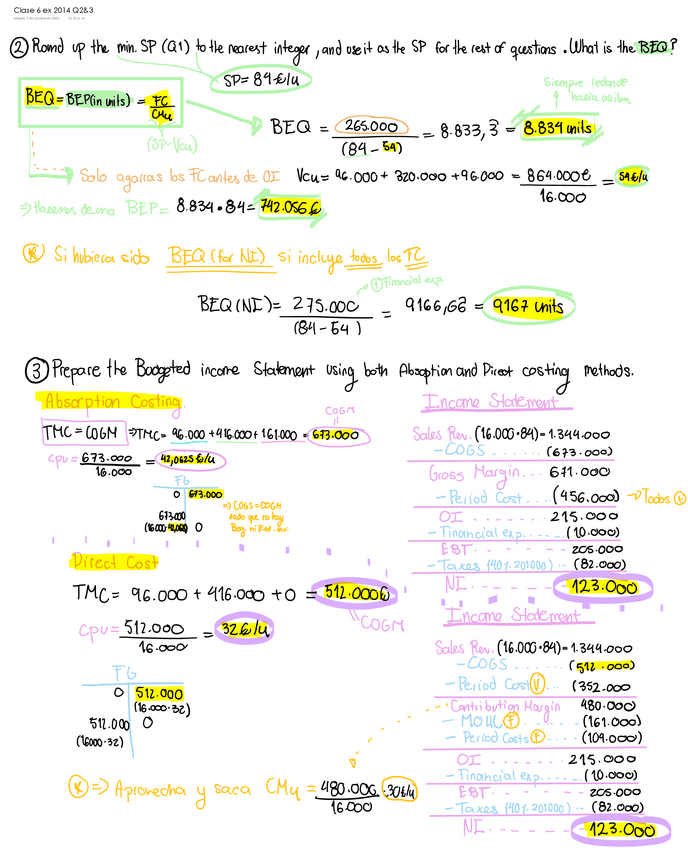 Clase 6 ex 2014 Q2&3
② Round up the min. SP (Q1) to the nearest integer, and use it as the SP for the rest of questions. What is the BEQ?
SP = 84 €/u
Siempre redondear hacia arriba
BEQ = BEP (in units) = FC / CMu
(SP - Vcu)
BEQ = 265.000 / (84 - 54) = 8.833,3̂ = 8.834 units
Solo agarras los FC antes de OI
Vcu = 96.000 + 320.000 + 96.000 = 864.000€ / 16.000 = 54€/u
⇒ Haremos de una BEP = 8.834 · 84 = 742.056 €
Ⓡ Si hubiera sido BEQ (for NI) si incluye todos los FC
① Financial exp
BEQ (NI) = 275.000 / (84 - 54) = 9166,66̂ = 9167 units
③ Prepare the Budgeted income Statement using both Absoption and Direct costing methods.
Absorption Costing.
COGM
TMC = COGM ⇒ TMC = 96.000 + 416.000 + 161.000 = 673.000
cpu = 673.000 / 16.000 = 42,0625 €/u
FG
0 673.000
673.000
(16.000 · 42,062) 0
⇒ COGS = COGM
dado que no hay
Beg. ni End. inv.
Income Statement
Sales Rev. (16.000 · 84) = 1.344.000
- COGS ...... (673.000)
Gross Margin... 671.000
- Period Cost... (456.000) → Todos
OI ...... 215.000
- Financial exp...... (10.000)
EBT ...... 205.000
- Taxes (40%. 205000) .. (82.000)
NI ...... 123.000
Direct Cost
TMC = 96.000 + 416.000 + 0 = 512.000€
COGM
cpu = 512.000 / 16.000 = 32€/u
FG
0 512.000
(16.000 · 32)
512.000 0
(16000 · 32)
Income Statement
Sales Rev. (16.000 · 84) = 1.344.000
- COGS ...... (512.000)
- Period Cost Ⓥ ... (352.000
Contribution Margin 480.000
- MOUC Ⓕ ...... (161.000)
- Period Costs Ⓕ .... (104.000)
OI ...... 215.000
- Financial exp..... (10.000)
EBT ...... 205.000
- Taxes (40%. 205000) .. (82.000)
NI ...... 123.000
Ⓡ ⇒ Aprovecha y saca CMu = 480.000 / 16.000 = 30€/u